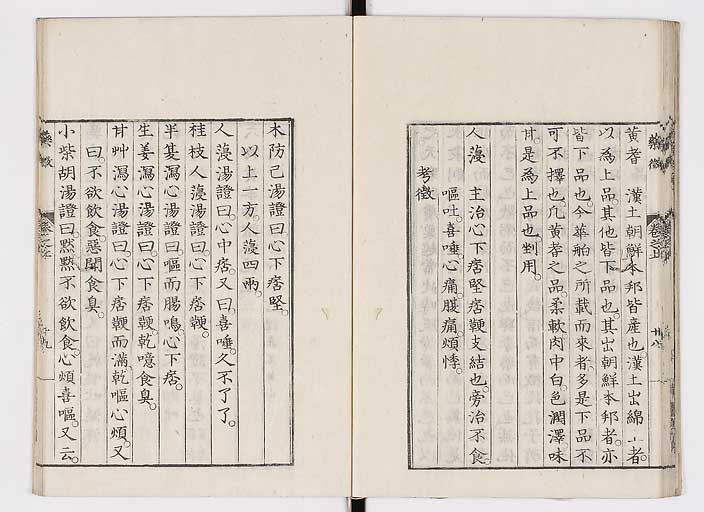 黄耆　漢土朝鮮本邦皆産也。漢土出綿上者。
以為上品。其他皆下品也。其出朝鮮本邦者。亦
皆下品也。今華舶之所載而来者。多是下品。不
可不擇也。凡黄耆之品。柔軟肉中白色潤澤味
甘。是為上品也。剉用。
人薓　主治心下痞堅痞鞕支結也。旁治不食
嘔吐。喜唾。心痛腹痛煩悸。
考徵
木防己湯證曰。心下痞堅。
以上一方。人薓四兩。
人薓湯證曰。心中痞。又曰。喜唾。久不了了。
桂枝人薓湯證曰。心下痞鞕。
半夏瀉心湯證曰。嘔而腸鳴。心下痞。
生姜瀉心湯證曰。心下痞鞕。乾噫食臭。
甘艸瀉心湯證曰。心下痞鞕而滿。乾嘔心煩。又
曰。不欲飲食。惡聞食臭。
小柴胡湯證曰。默默不欲飲食。心煩喜嘔。又云。
藥徵
卷之上
廿八
藥徵